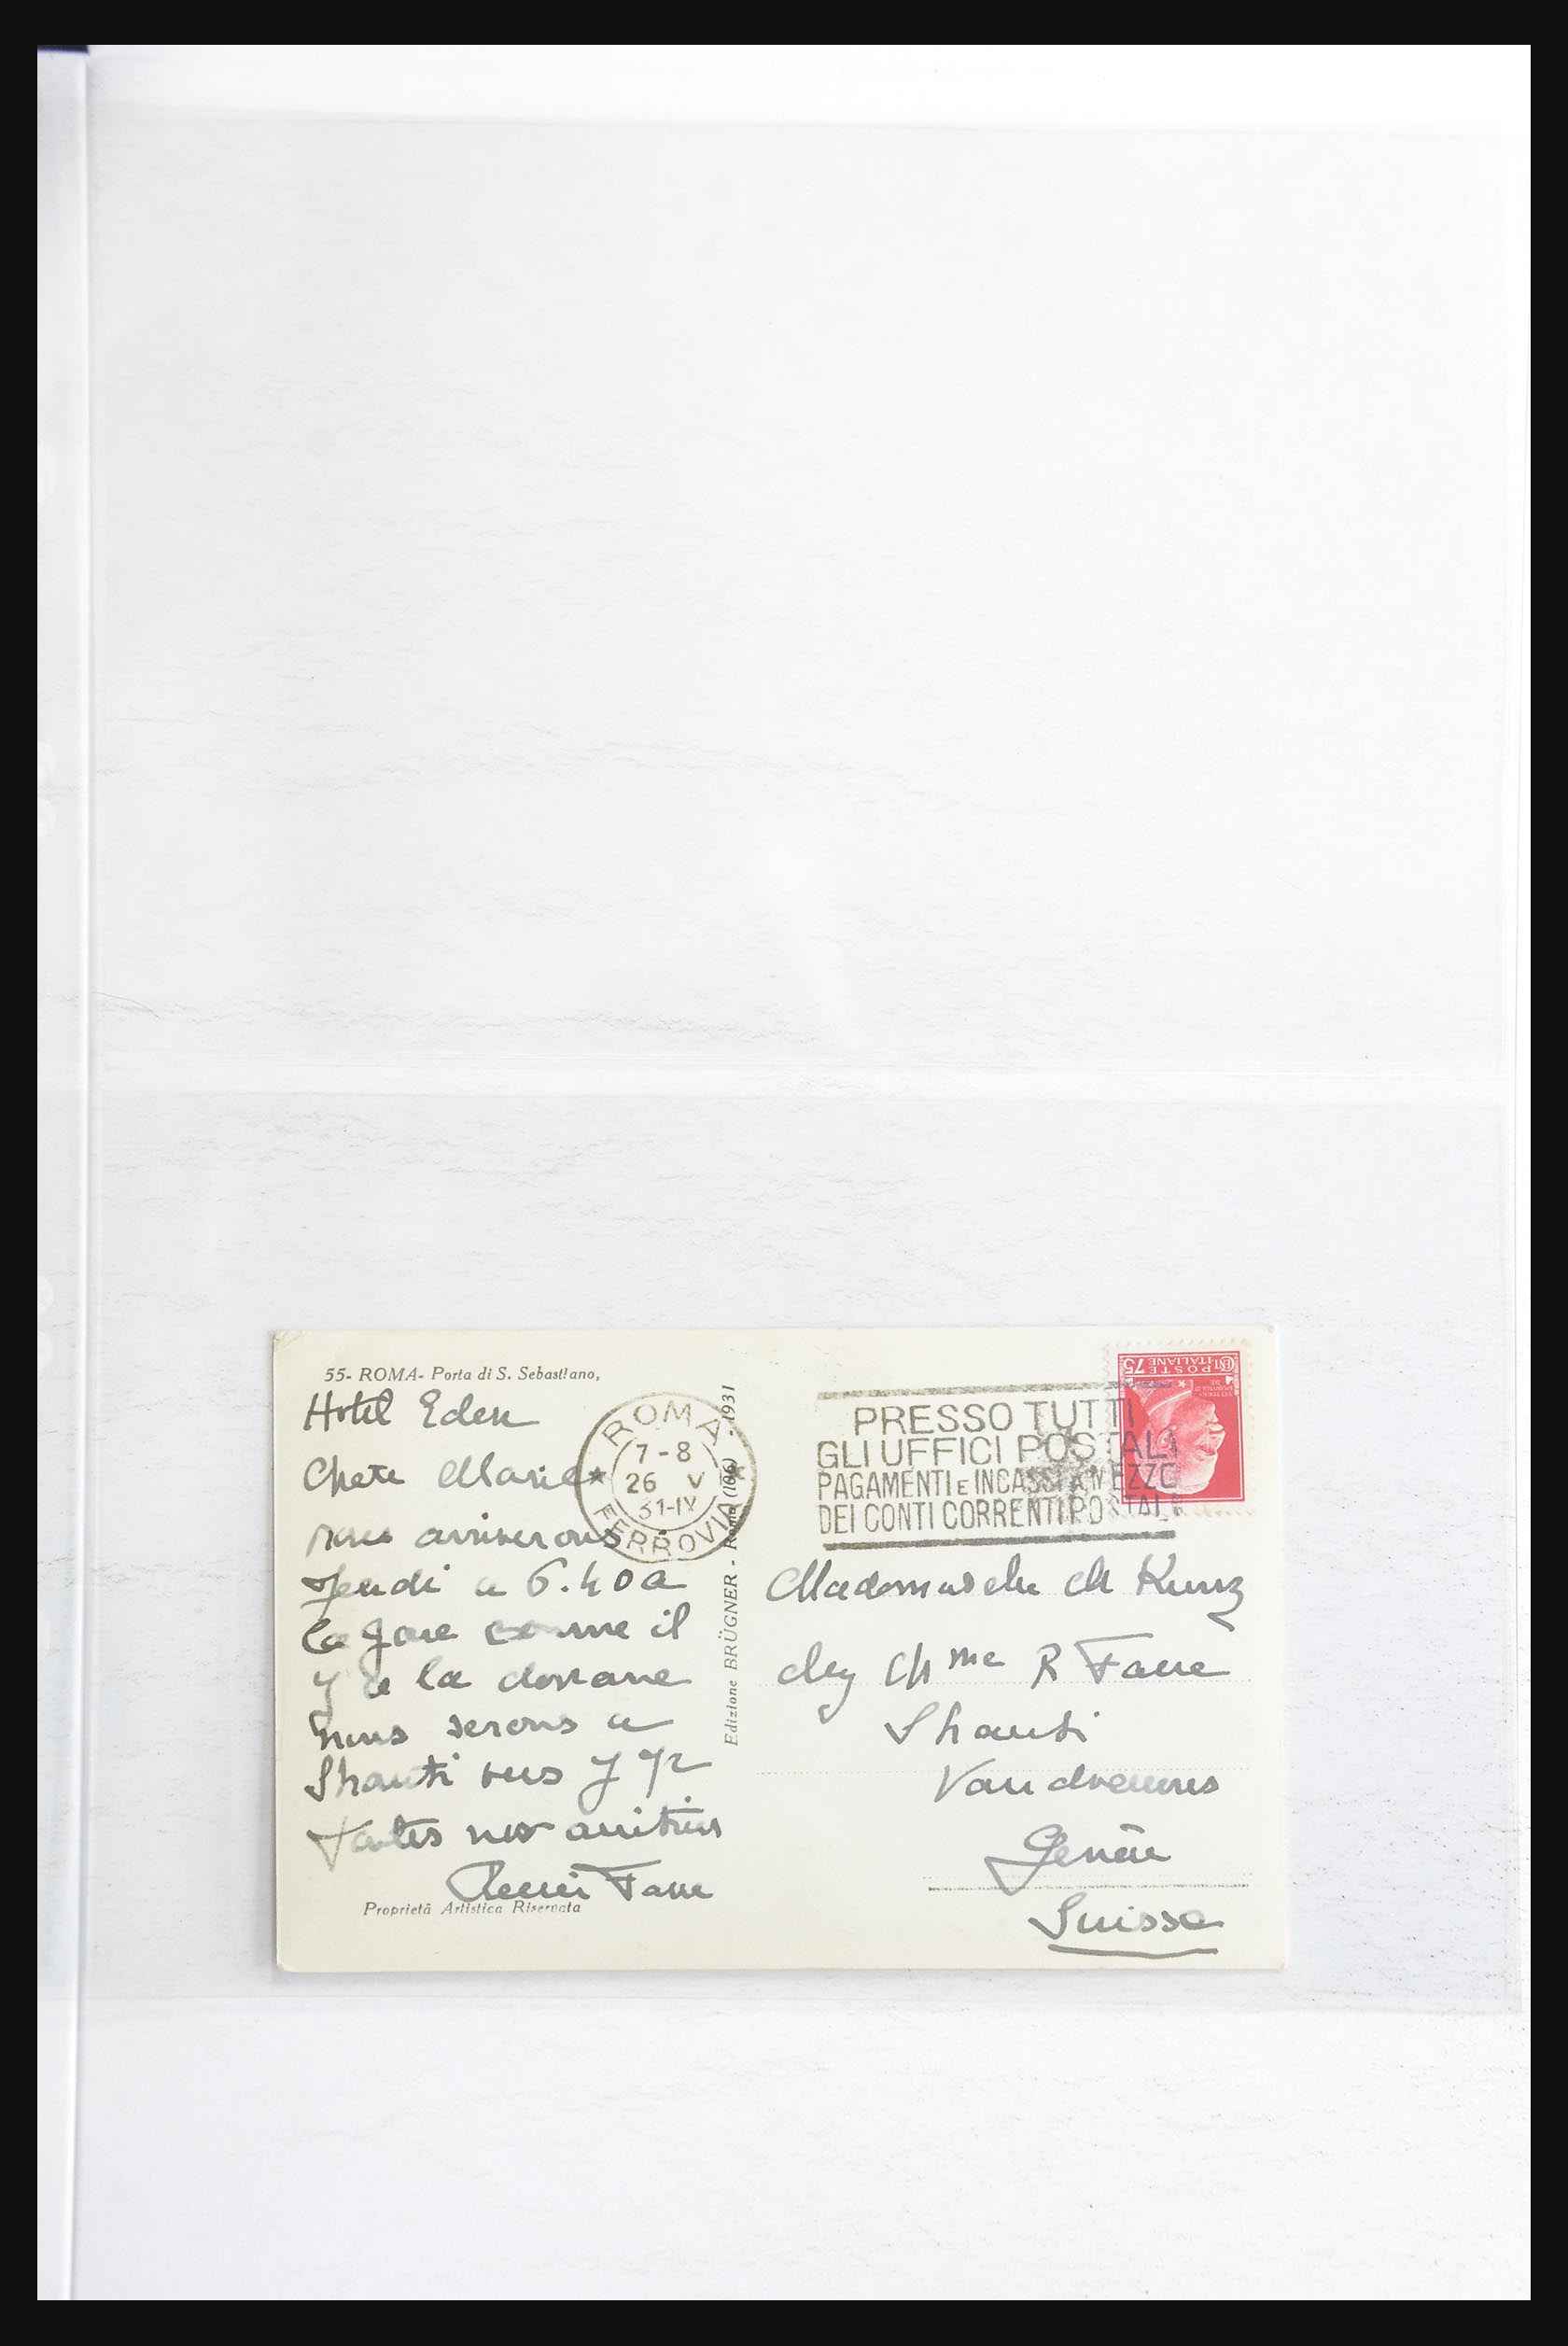 55- ROMA- Porta di S. Sebastiano,
Hotel Eden
Chere Marie
nous arriverons
Jeudi a 6.40 a
la gare comme il
y a la douane
nous serons a
Shanti vers 7 1/2
toutes nos amitiés
Favre
Proprietà Artistica Riservata
ROMA
7-8
26 V
31-IX
FERROVIA
Edizione BRÜGNER - Roma (106) - 1931
PRESSO TUTTI
GLI UFFICI POSTALI
PAGAMENTI E INCASSI A MEZZO
DEI CONTI CORRENTI POSTALI
POSTE
ITALIANE
75
Mademoiselle M Kunz
chez Mme R Favre
Shanti
Vandœuvres
Genève
Suisse